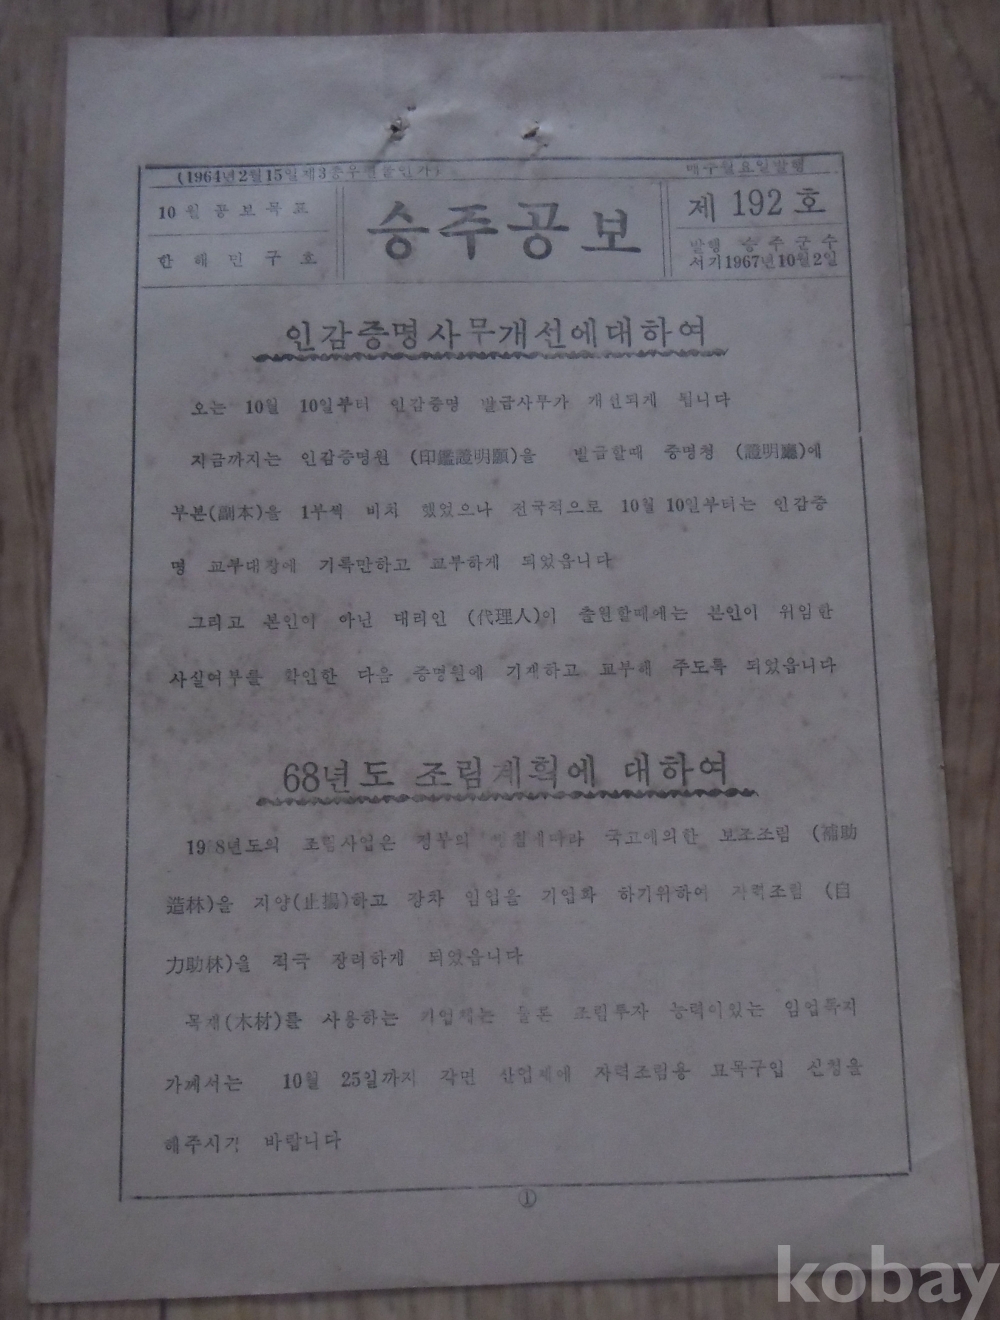 (1964년2월15일제3종우편물인가)
매주월요일발행
10월공보목표
한해민구호
승주공보
제 192 호
발행 승주군수
서기1967년10월2일
인감증명사무개선에대하여
오는 10월 10일부터 인감증명 발급사무가 개선되게 됩니다
지금까지는 인감증명원 (印鑑證明願)을 발급할때 증명청 (證明廳)에
부본(副本)을 1부씩 비치 했었으나 전국적으로 10월 10일부터는 인감증
명 교부대장에 기록만하고 교부하게 되었읍니다
그리고 본인이 아닌 대리인 (代理人)이 출원할때에는 본인이 위임한
사실여부를 확인한 다음 증명원에 기재하고 교부해 주도록 되었읍니다
68년도 조림계획에 대하여
1968년도의 조림사업은 정부의 국고에의한 보조조림 (補助
造林)을 지양(止揚)하고 장차 임업을 기업화 하기위하여 자력조림 (自
力助林)을 적극 장려하게 되었읍니다
목재(木材)를 사용하는 기업체는 물론 조림투자 능력이있는 임업독지
가께서는 10월 25일까지 각면 산업계에 자력조림용 묘목구입 신청을
해주시기 바랍니다
①
kobay